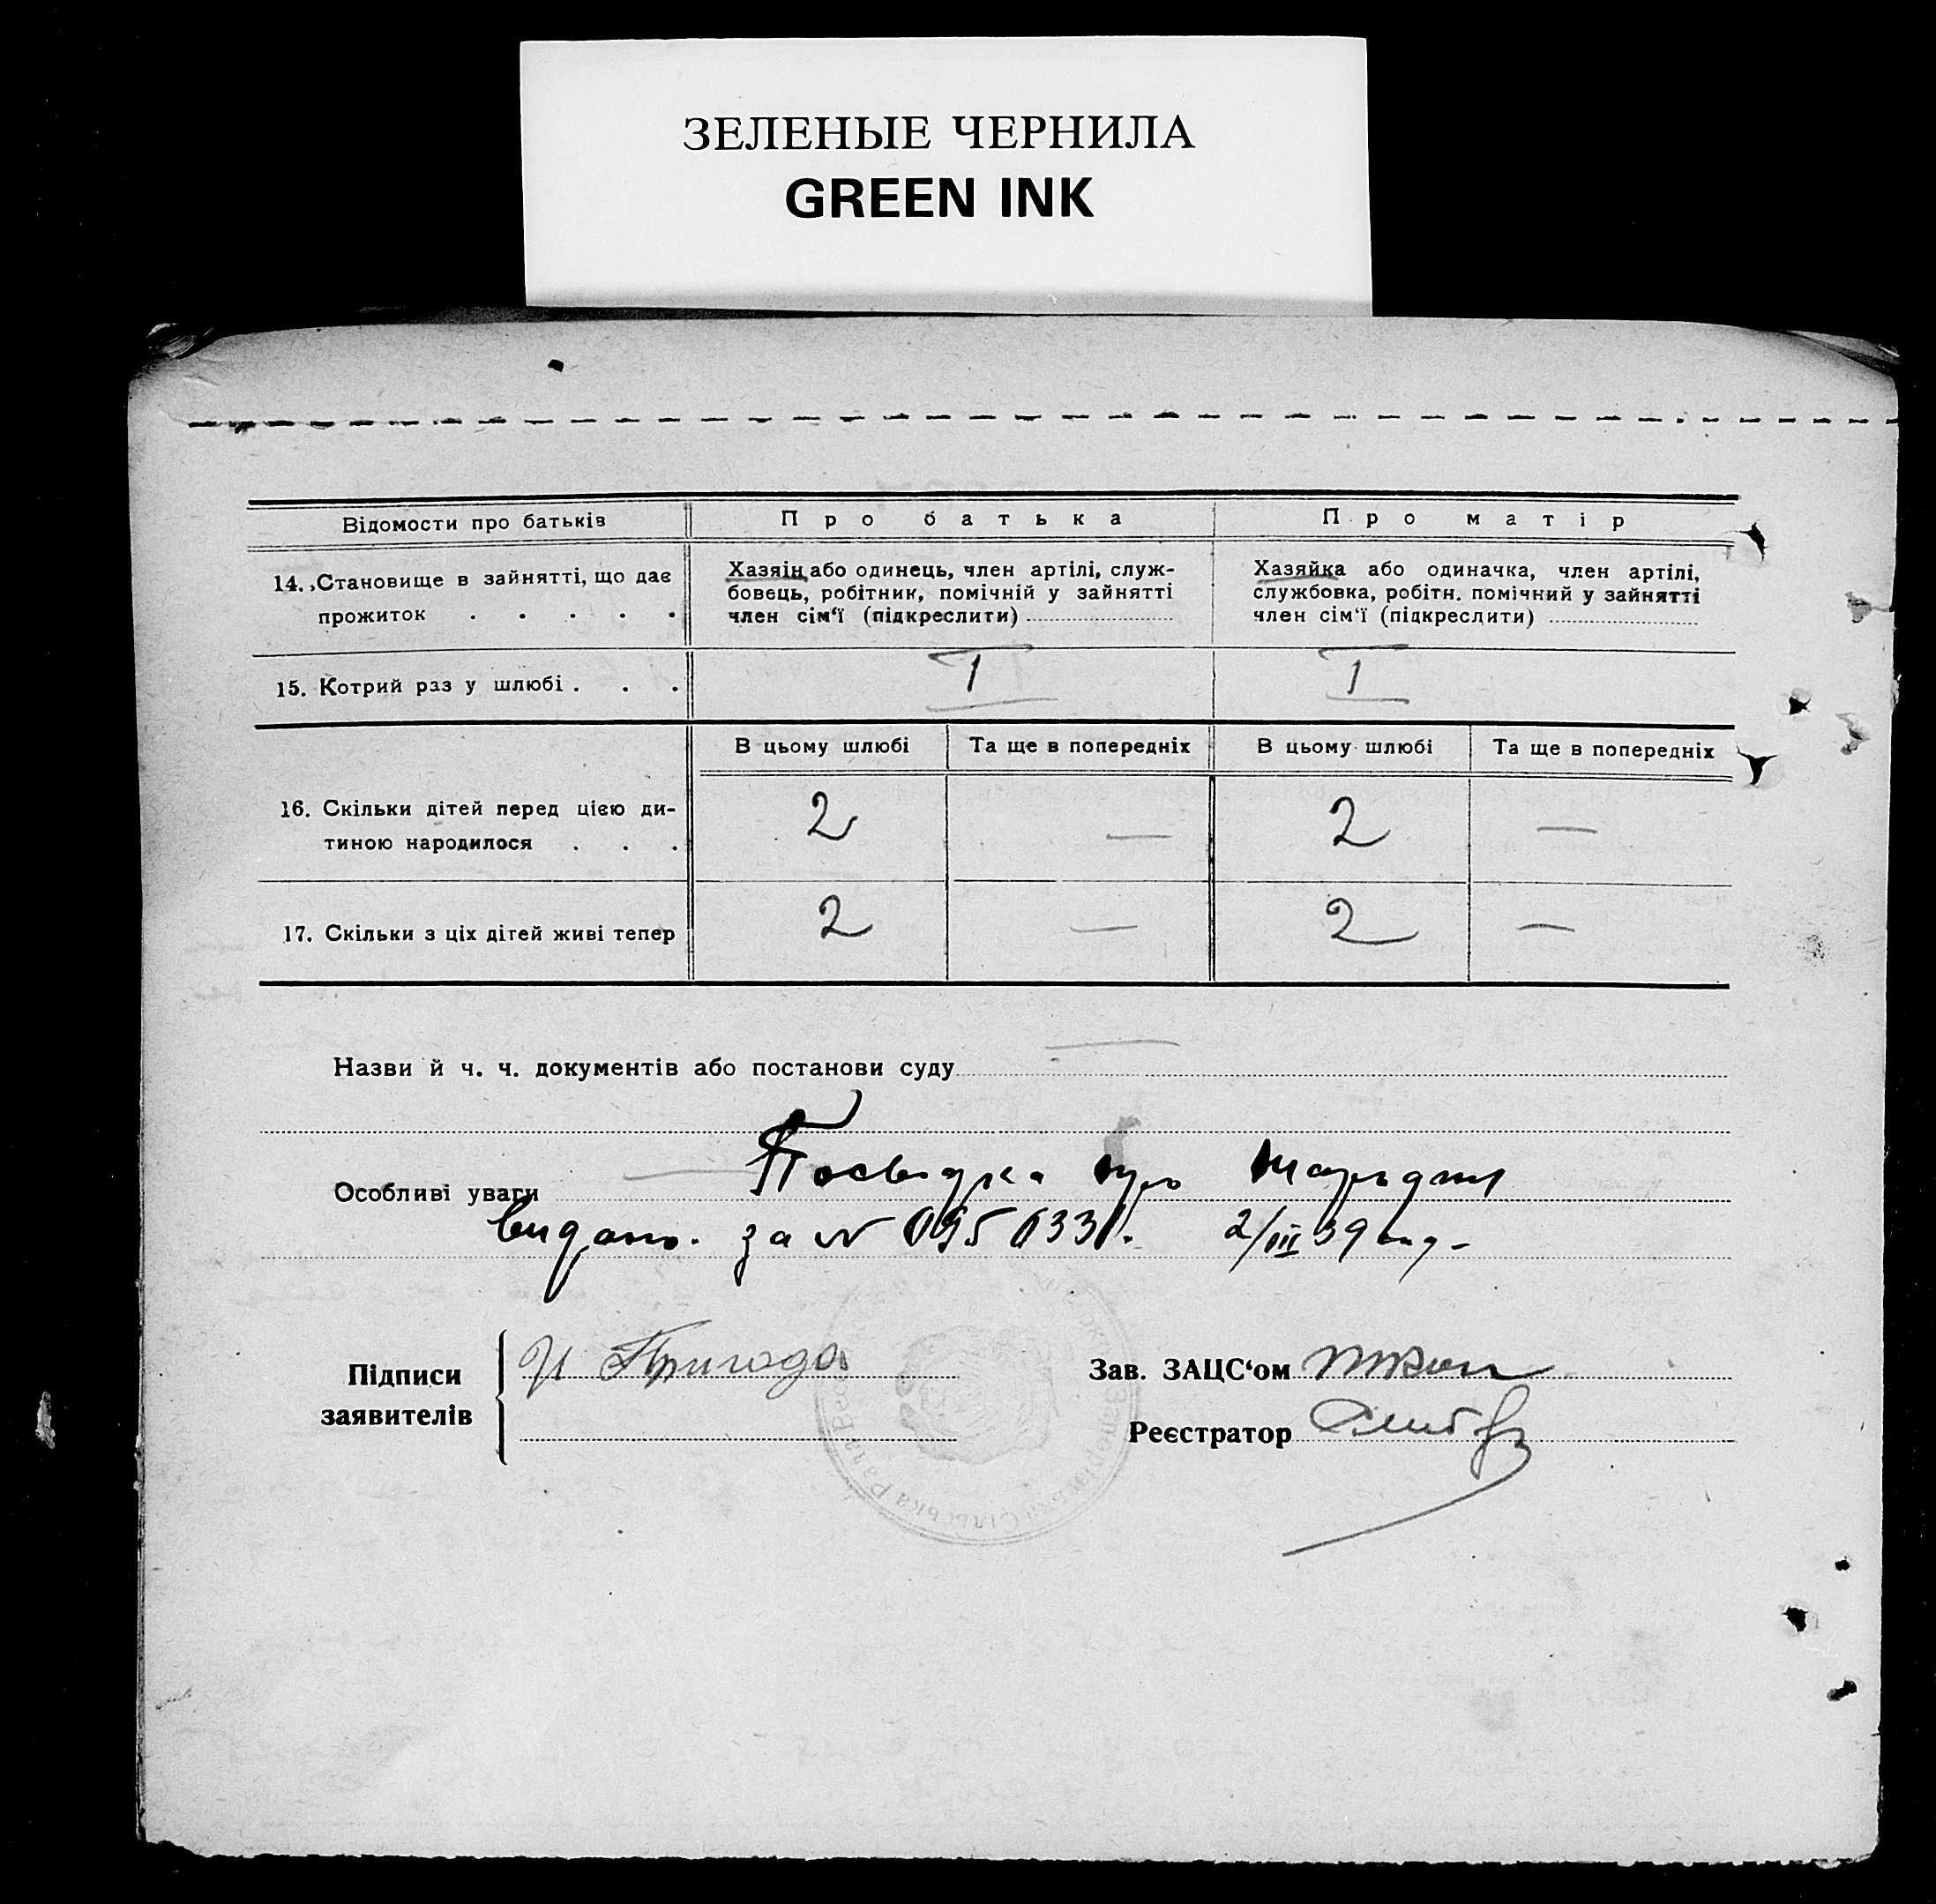 ЗЕЛЕНЫЕ ЧЕРНИЛА
GREEN INK
Відомости про батьків
Про батька
Про матір
14. Становище в зайнятті, що дає
прожиток . . . . .
Хазяїн або одинець, член артілі, служ-
бовець, робітник, помічній у зайнятті
член сім'ї (підкреслити)
Хазяйка або одиначка, член артілі,
службовка, робітн. помічний у зайнятті
член сім'ї (підкреслити)
15. Котрий раз у шлюбі . . .
I I
В цьому шлюбі Та ще в попередніх В цьому шлюбі Та ще в попередніх
16. Скільки дітей перед цією ди-
тиною народилося . . .
2 — 2 —
17. Скільки з ціх дітей живі тепер
2 — 2 —
Назви й ч. ч. документів або постанови суду —
Особливі уваги — Посвідка про
за N 2/III 39
Підписи
заявителів
И Пригода
Зав. ЗАЦС'ом
Реєстратор
Сільська Рада